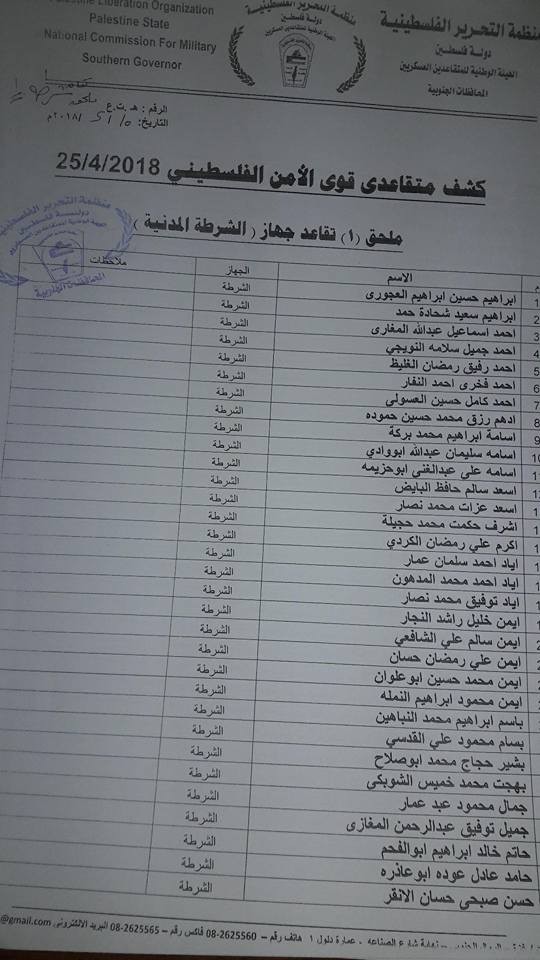 Palestine Liberation Organization
Palestine State
National Commission For Military
Southern Governor
منظمة التحرير الفلسطينية
دولة فلسطين
الهيئة الوطنية للمتقاعدين العسكريين
المحافظات الجنوبية
منظمة التحرير الفلسطينية
دولة فلسطين
الرقم : هـ.ت.ع
التاريخ: ٢٠١٨/٥/١٥م
كشف متقاعدى قوى الأمن الفلسطيني 25/4/2018
ملحق (١) تقاعد جهاز ( الشرطة المدنية )
منظمة التحرير الفلسطينية
دولة فلسطين
المحافظات الجنوبية
م الاسم الجهاز ملاحظات
1 ابراهيم حسين ابراهيم العجورى الشرطة
2 ابراهيم سعيد شحادة حمد الشرطة
3 احمد اسماعيل عبدالله المغارى الشرطة
4 احمد جميل سلامه النويجي الشرطة
5 احمد رفيق رمضان الغليظ الشرطة
6 احمد فخرى احمد النفار الشرطة
7 احمد كامل حسين العسولى الشرطة
8 ادهم رزق محمد حسين حموده الشرطة
9 اسامة ابراهيم محمد بركة الشرطة
10 اسامه سليمان عبدالله ابووادي الشرطة
1 اسامه علي عبدالغنى ابوحزيمه الشرطة
1 اسعد سالم حافظ البايض الشرطة
1 اسعد عزات محمد نصار الشرطة
1 اشرف حكمت محمد حجيلة الشرطة
1 اكرم علي رمضان الكردي الشرطة
1 اياد احمد سلمان عمار الشرطة
1 اياد احمد محمد المدهون الشرطة
1 اياد توفيق محمد نصار الشرطة
1 ايمن خليل راشد النجار الشرطة
2 ايمن سالم علي الشافعي الشرطة
2 ايمن علي رمضان حسان الشرطة
2 ايمن محمد حسين ابوعلوان الشرطة
2 ايمن محمود ابراهيم النمله الشرطة
2 باسم ابراهيم محمد النباهين الشرطة
بسام محمود علي القدسي الشرطة
بشير حجاج محمد ابوصلاح الشرطة
بهجت محمد خميس الشوبكى الشرطة
جمال محمود عبد عمار الشرطة
جميل توفيق عبدالرحمن المغازى الشرطة
حاتم خالد ابراهيم ابوالفحم الشرطة
حامد عادل عوده ابوعاذره الشرطة
حسن صبحي حسان الانقر الشرطة
نهاية شارع الصناعه - عمارة دلول ١ هاتف رقم – 2625560-08 فاكس رقم – 2625565-08 البريد الالكترونى @gmail.com